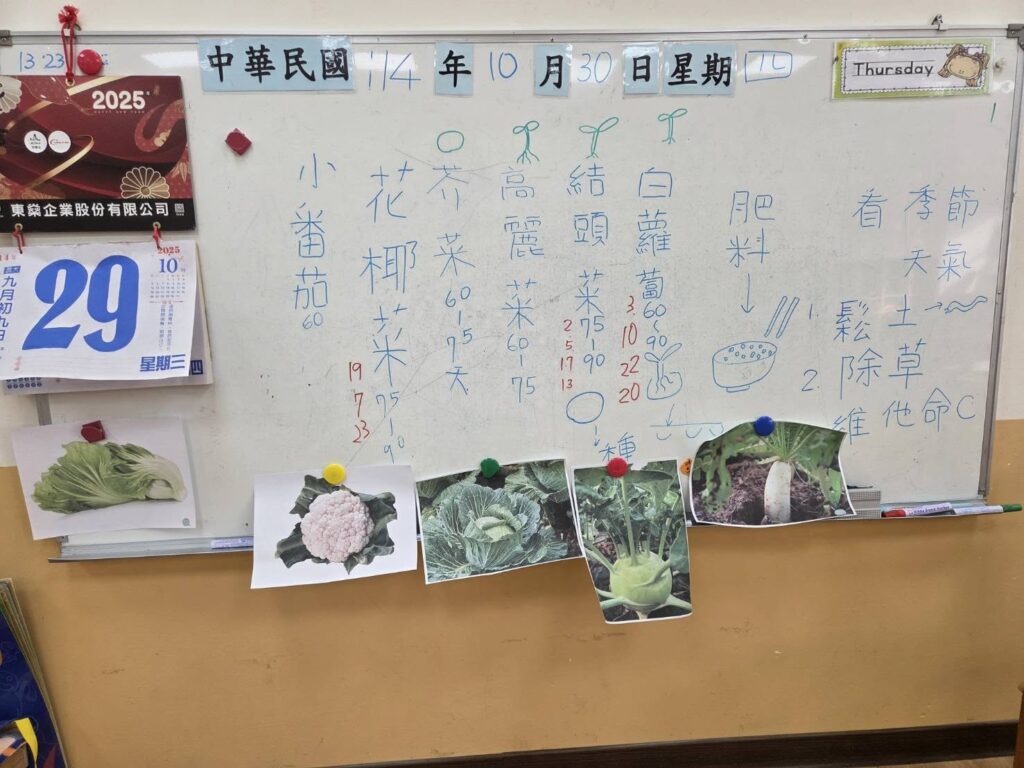 中華民國114年10月30日星期四
Thursday
13 23
2025
東燊企業股份有限公司
2025
10
九月初九日
29
星期三
四
看季節
天氣
1. 鬆土
2. 除草
維他命C
肥料
白蘿蔔 60~90
3 10 22 20
結頭菜 75-90
2 5 17 13
種
高麗菜 60-75
芥菜 60-75天
花椰菜 75-90
19 7 23
小番茄 60